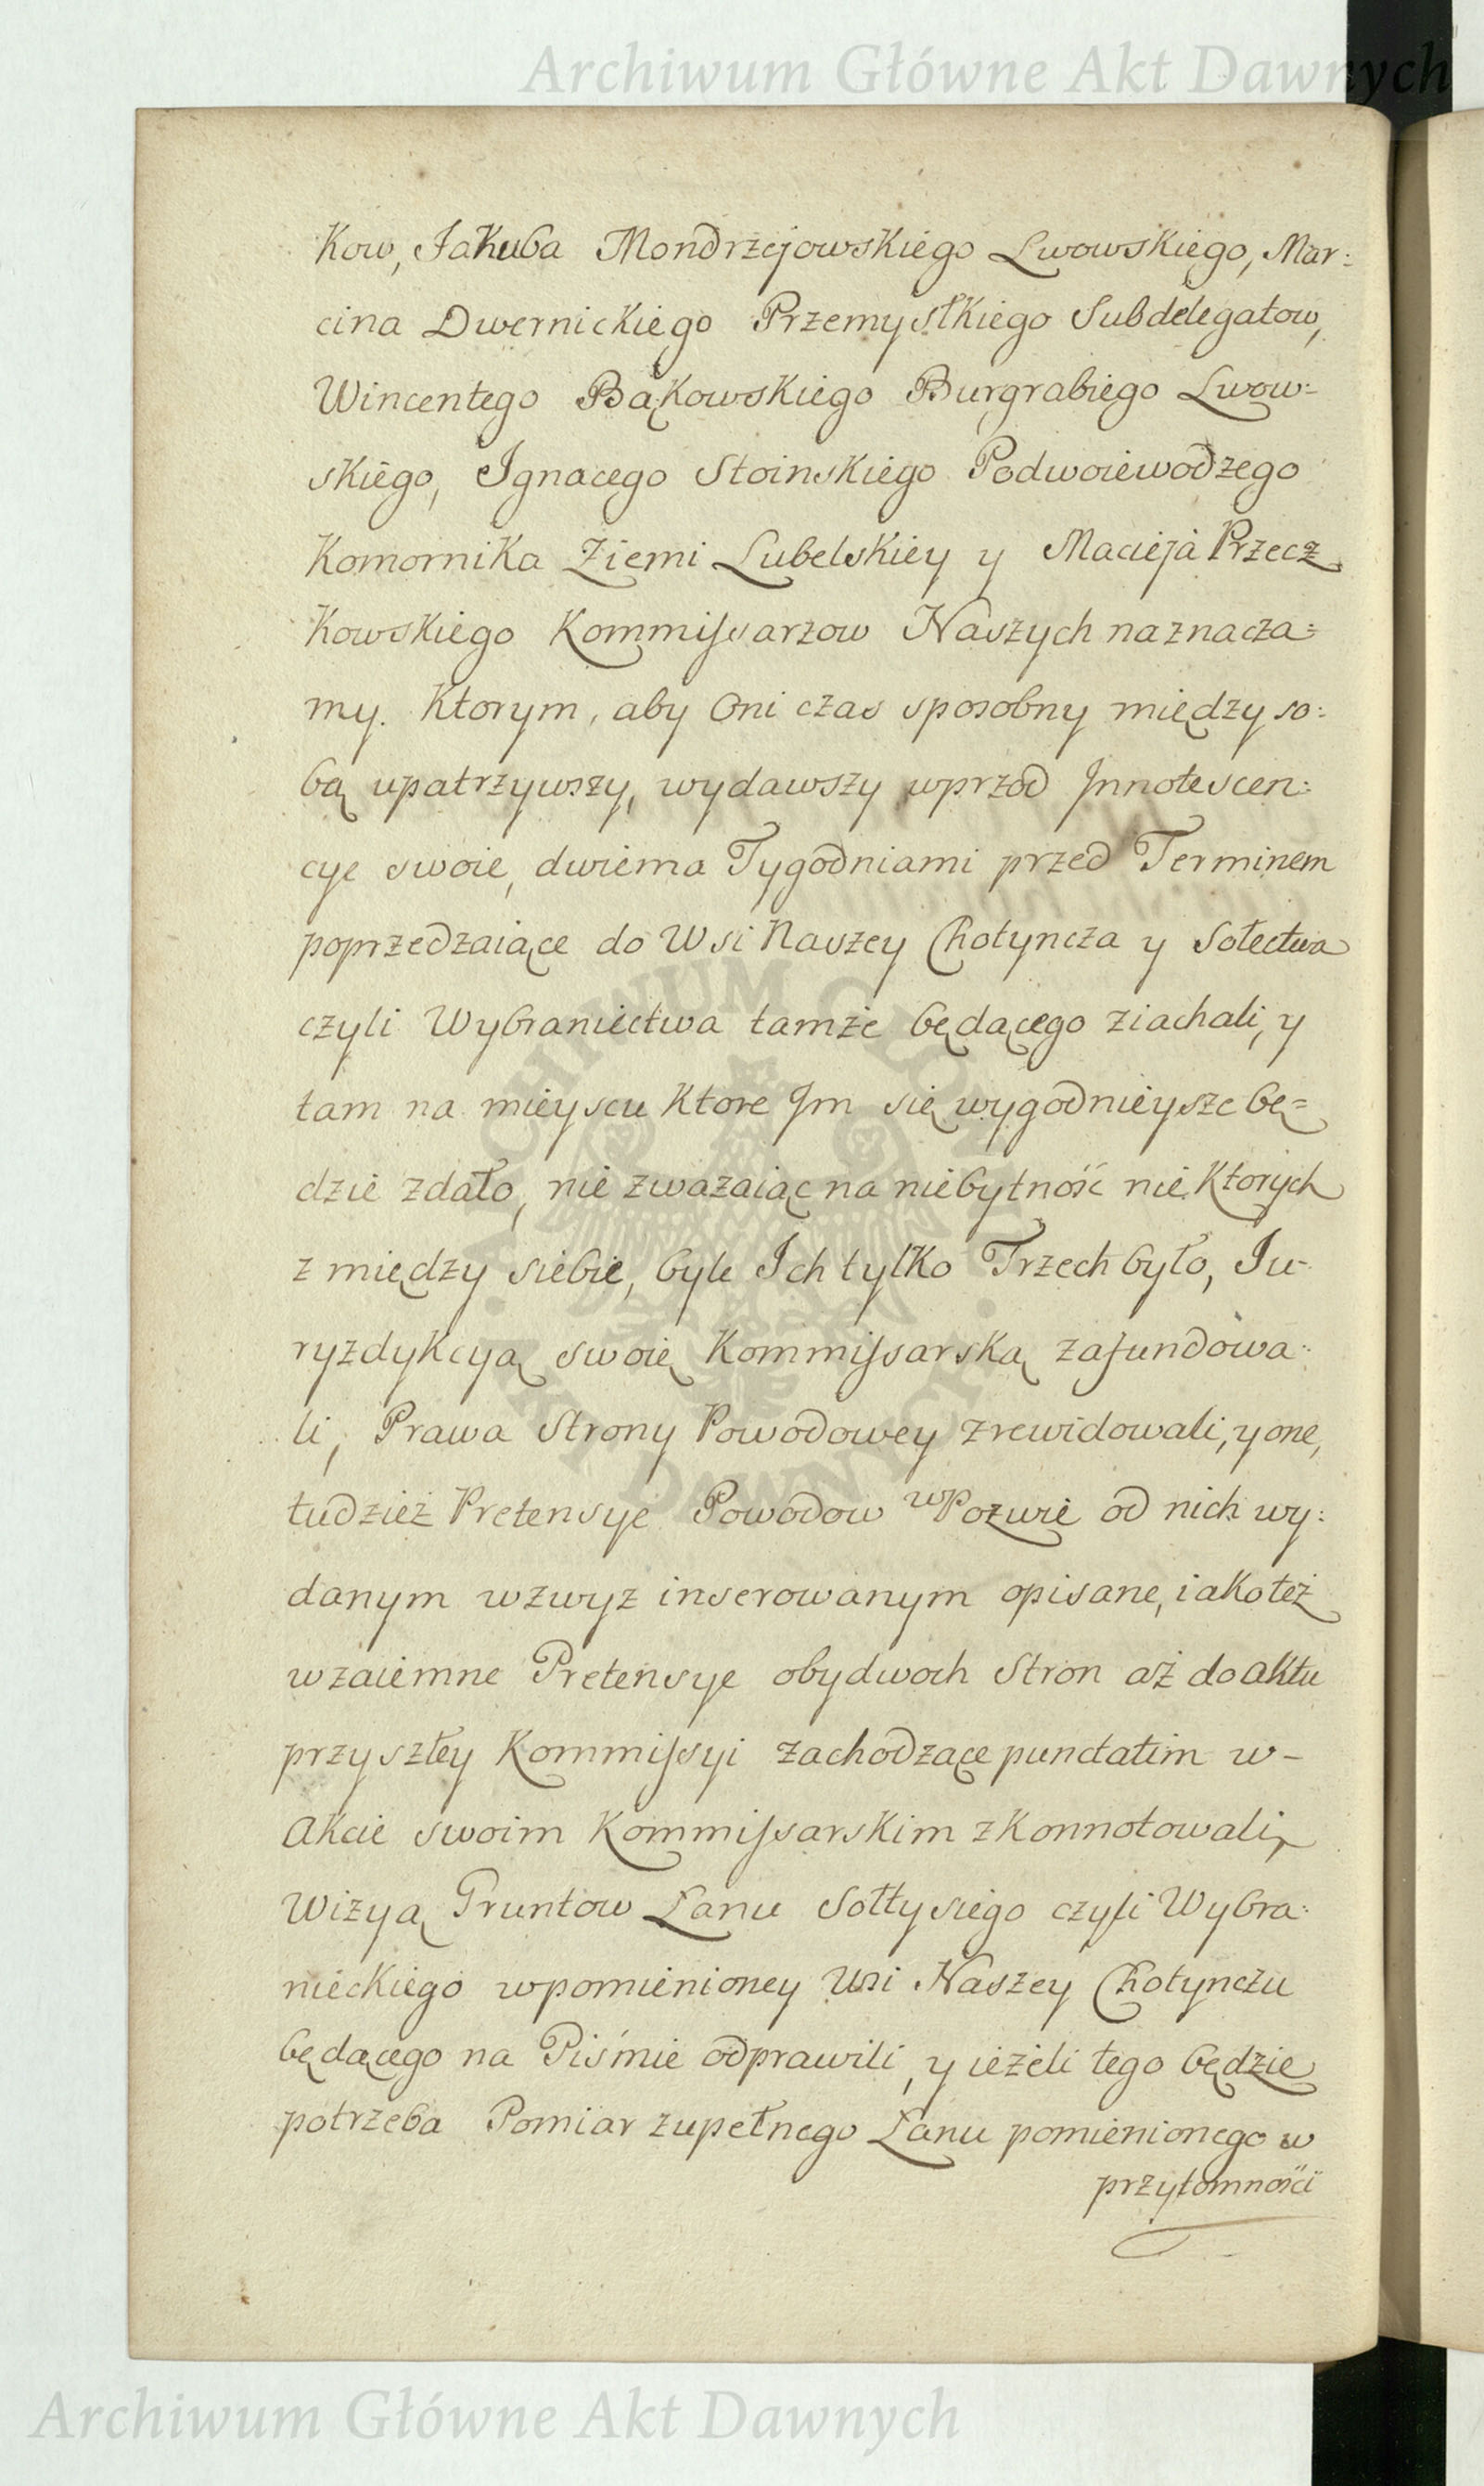 Archiwum Główne Akt Dawnych
Kow, Jakuba Mondrzejowskiego Lwowskiego, Mar:
cina Dwernickiego Przemyslkiego Subdelegatow,
Wincentego Bąkowskiego Burgrabiego Lwow=
skiego, Ignacego Stoinskiego Podwoiewodzego
Komornika Ziemi Lubelskiey y Macieja Przecz
kowskiego Kommissarzow Naszych naznacza=
my. Ktorym, aby Oni czas sposobny między so:
bą upatrzywszy, wydawszy wprzod Innotescen:
cye swoie, dwiema Tygodniami przed Terminem
poprzedzaiące do Wsi Naszey Chotyncza y Sołectwa
czyli Wybraniectwa tamże będącego ziachali, y
tam na mieyscu Ktore Jm się wygodnieysze bę=
dzie zdało, nie zwazaiąc na niebytność nie Ktorych
z między siebie, byle Ich tylko Trzech było, Iu-
ryzdykcyą swoię Kommissarską zafundowa:
li, Prawa Strony Powodowey zrewidowali, y one,
tudzież Pretensye Powodow w Pozwie od nich wy:
danym wzwyz inserowanym opisane, iako też
wzaiemne Pretensye obydwoch Stron aż do aktu
przyszłey Kommissyi zachodzące punctatim w-
Akcie swoim Kommissarskim zkonnotowali,
Wizyą Gruntow Łanu Sołtysiego czyli Wybra:
nieckiego w pomienioney Wsi Naszey Chotynczu
będącego na Piśmie odprawili, y ieżeli tego będzie
potrzeba Pomiar zupełnego Łanu pomienionego w
przytomności
ARCHIWUM GŁÓWNE AKT DAWNYCH
Archiwum Główne Akt Dawnych